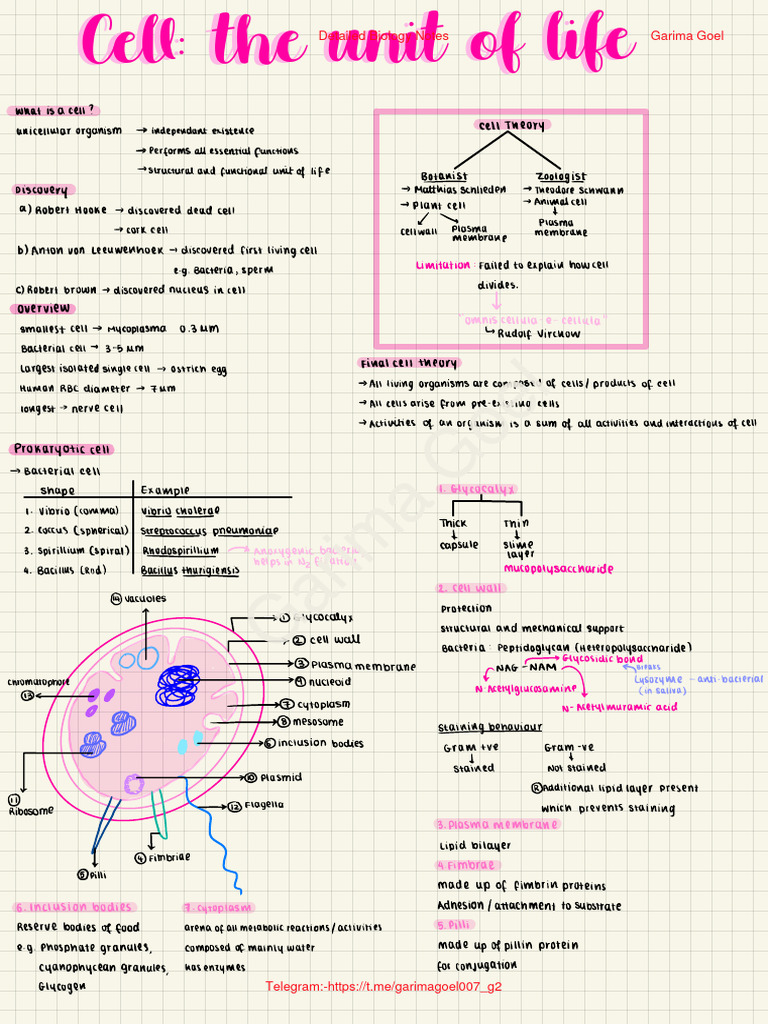 Cell: the unit of life
Detailed Biology Notes
Garima Goel
What is a cell?
unicellular organism → independant existence
→ Performs all essential functions
→ structural and functional unit of life
Discovery
a) Robert Hooke → discovered dead cell
→ cork cell
b) Anton von Leeuwenhoek → discovered first living cell
e.g. Bacteria, sperm
c) Robert brown → discovered nucleus in cell
overview
smallest cell → Mycoplasma 0.3 μm
Bacterial cell → 3-5 μm
Largest isolated single cell → ostrich egg
Human RBC diameter → 7 μm
longest → nerve cell
cell Theory
Botanist
→ Matthias Schlieden
→ Plant cell
cell wall
Plasma
membrane
Zoologist
→ Theodore Schwann
→ Animal cell
Plasma
membrane
Limitation: Failed to explain how cell
divides.
"omnis cellula-e-cellula"
Rudolf Virchow
Final cell theory
→ All living organisms are composed of cells/ products of cell
→ All cells arise from pre-existing cells
→ Activities of an organism is a sum of all activities and interactions of cell
Prokaryotic cell
→ Bacterial cell
shape Example
1. Vibrio (comma) Vibrio cholerae
2. Coccus (spherical) Streptococcus pneumoniae
3. Spirillium (spiral) Rhodospirillium → Anoxygenic bacteria
helps in N₂ fixation
4. Bacillus (Rod) Bacillus thurigiensis
14 vacuoles
1 Glycocalyx
2 cell wall
3 Plasma membrane
9 nucleoid
7 cytoplasm
8 mesosome
6 inclusion bodies
10 Plasmid
12 Flagella
4 Fimbriae
5 Pilli
11
Ribosome
chromatophore
13
1. Glycocalyx
Thick Thin
capsule slime
layer
mucopolysaccharide
2. cell wall
Protection
structural and mechanical support
Bacteria: Peptidoglycan (Heteropolysaccharide)
Glycosidic bond
NAG - NAM
breaks
Lysozyme - anti-bacterial
(in saliva)
N-Acetylglucosamine
N-Acetylmuramic acid
Staining behaviour
Gram +ve Gram -ve
stained Not stained
R Additional lipid layer present
which prevents staining
3. Plasma membrane
Lipid bilayer
4. Fimbrae
made up of fimbrin proteins
Adhesion / attachment to substrate
5. Pilli
made up of pillin protein
for conjugation
6. Inclusion bodies
Reserve bodies of food
e.g. Phosphate granules,
cyanophycean granules,
Glycogen
7. cytoplasm
arena of all metabolic reactions/ activities
composed of mainly water
has enzymes
Garima Goel
Telegram:-https://t.me/garimagoel007_g2